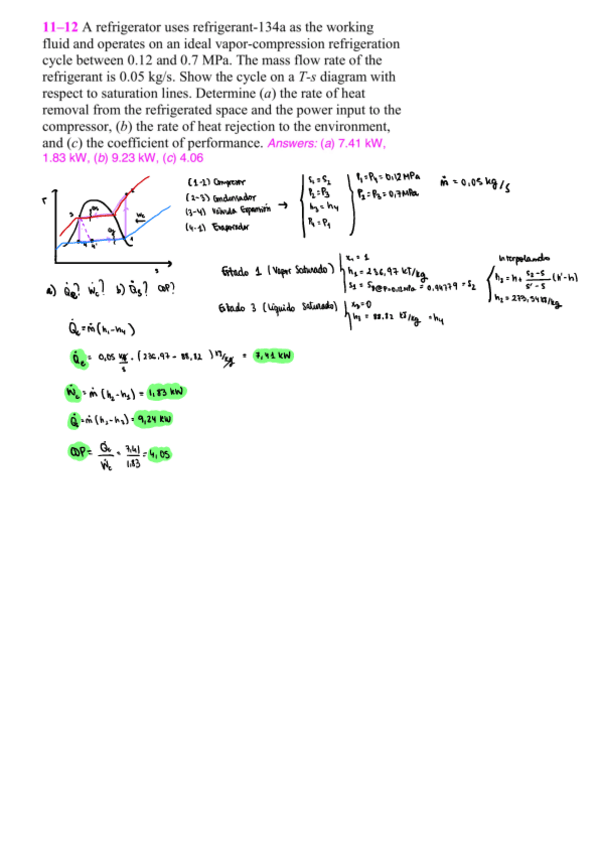 11–12 A refrigerator uses refrigerant-134a as the working
fluid and operates on an ideal vapor-compression refrigeration
cycle between 0.12 and 0.7 MPa. The mass flow rate of the
refrigerant is 0.05 kg/s. Show the cycle on a T-s diagram with
respect to saturation lines. Determine (a) the rate of heat
removal from the refrigerated space and the power input to the
compressor, (b) the rate of heat rejection to the environment,
and (c) the coefficient of performance. Answers: (a) 7.41 kW,
1.83 kW, (b) 9.23 kW, (c) 4.06
T
s
(1-2) Compresor
(2-3) Condensador
(3-4) Válvula Expansión →
(4-1) Evaporador
S₁ = S₂
P₂ = P₃
h₃ = h₄
P₄ = P₁
P₁ = P₄ = 0,12 MPa
P₂ = P₃ = 0,7 MPa
ṁ = 0,05 kg/s
a) Q̇e? Ẇc? b) Q̇s? COP?
Estado 1 (Vapor Saturado)
x₁ = 1
h₁ = 236,97 kJ/kg
S₁ = Sg@P=0.12MPa = 0.94779 = S₂
Estado 3 (Líquido Saturado)
x₃ = 0
h₃ = 88.82 kJ/kg = h₄
Interpolando
h₂ = h + (S₂-S)/(S'-S) (h'-h)
h₂ = 273,54 kJ/kg
Q̇e = ṁ(h₁-h₄)
Q̇e = 0,05 kg/s · (236,97 - 88,82) kJ/kg = 7,41 kW
Ẇc = ṁ(h₂-h₁) = 1,83 kW
Q̇ = ṁ(h₂-h₃) = 9,24 kW
COP = Q̇e/Ẇc = 7,41/1.83 = 4,05